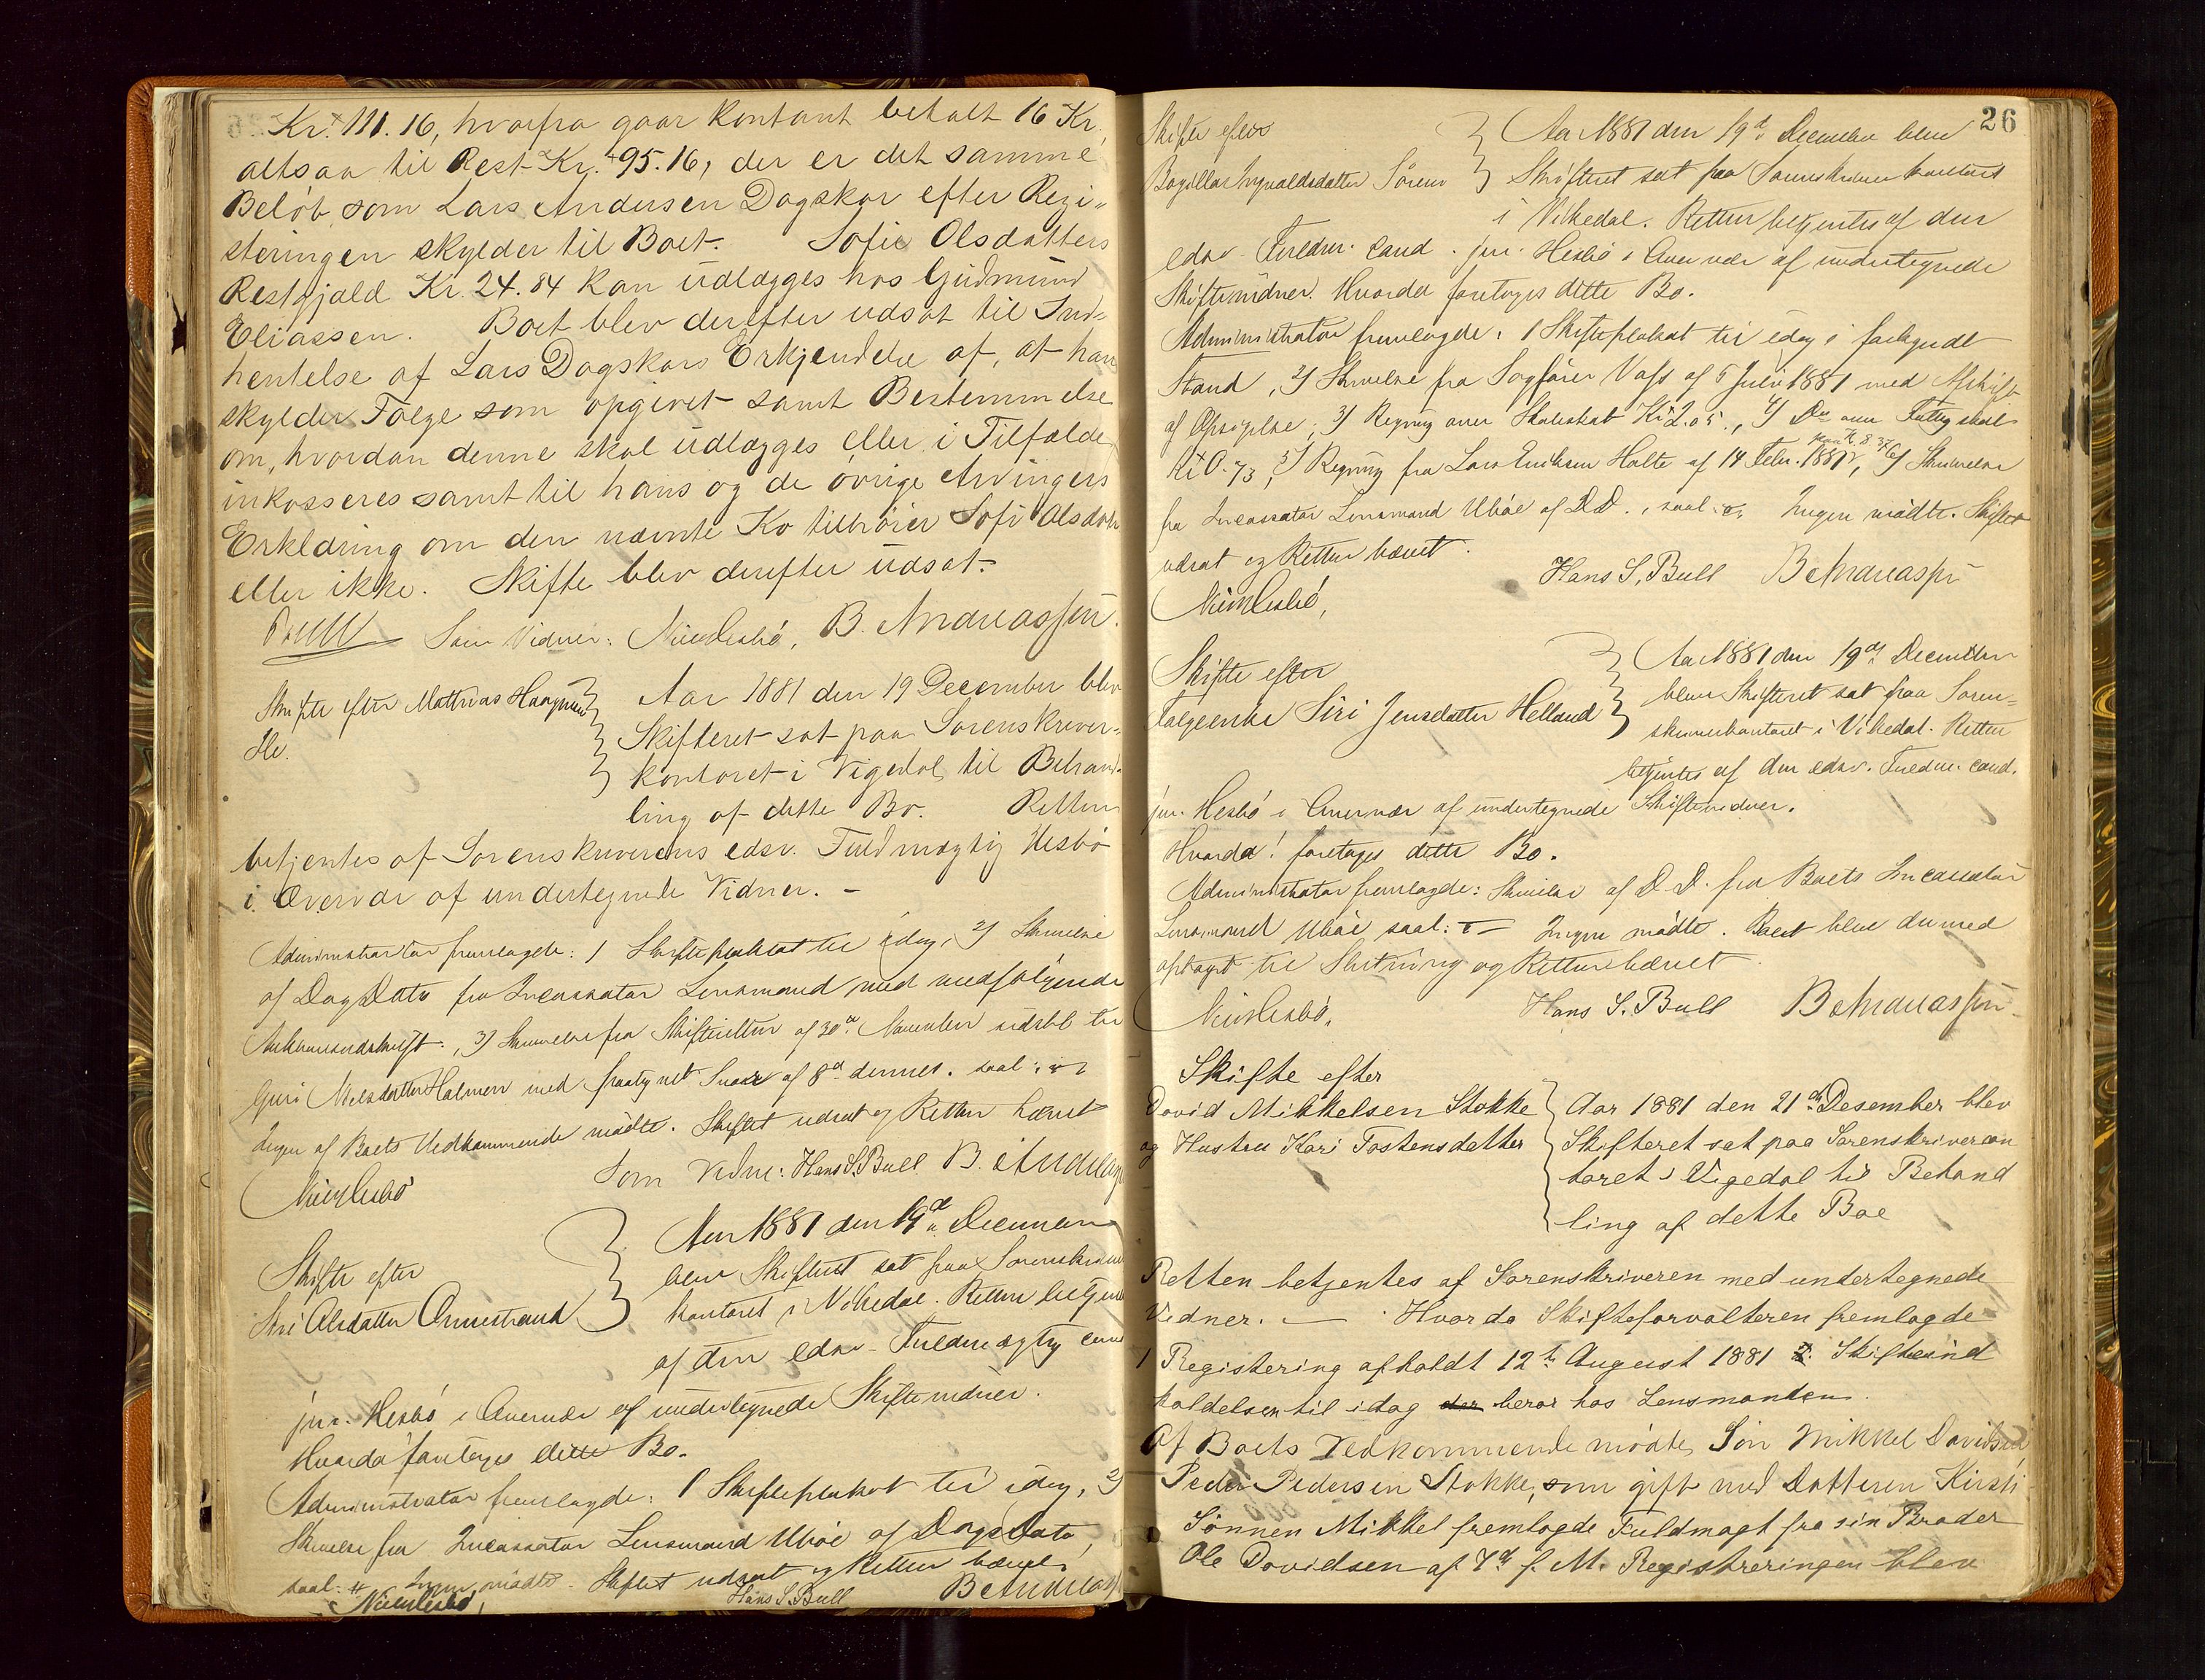 Kr. 111.16, hvorfra gaar Kontant betalt 16 Kr.
altsaa til Rest Kr. 95.16, der er det samme
Beløb som Lars Andersen Dagskar efter Regi-
steringen skylder til Boet. Sofie Olsdatters
Restgjæld Kr. 24.84 kan udlægges hos Gudmund
Eliassen. Boet blev derefter udsat til Ind-
hentelse af Lars Dagskars Erkjendelse af, at han
skylder Følge som opgivet samt Bestemmelse
om, hvordan denne skal udlægges eller i Tilfælde
inkasseres samt til hans og de øvrige Arvingers
Erklæring om den nævnte Ko tilhører Sofi Olsdatr
eller ikke. Skifte blev derefter udsat.
Som Vidner: B. Andreassen.
Skifte efter Mathias Haagensen
Aar 1881 den 19 December blev
Skifteret sat paa Sorenskriver-
kontoret i Vigedal til Behand-
ling af dette Bo. Retten
betjentes af Sorenskriverens edsv. Fuldmægtig Hesbø
i Overvær af undertegnede Vidner. –
Administrator fremlagde: 1 Skifteplakat til idag, 2) Skrivelse
af Dags Dato fra Incassator Lensmand med medfølgende
3) Skrivelse fra Skifteretten af 30te November udstedt til
Guri Nilsdatter Holmen med paategnet Svar af 8de dennes. saal:
Ingen af Boets Vedkommende mødte. Skiftet udsat og Retten hævet
Som Vidne: Hans S. Bull B. Andreas
Skifte efter
Siri Olsdatter Ommestrand
Aar 1881 den 19de December
blev Skifteret sat paa Sorenskriver
kontoret i Vikedal. Retten betjen
af den edsv. Fuldmægtig cand
jur. Hesbø i Overvær af undertegnede Skiftevidner.
Hvorda foretoges dette Bo.
Administrator fremlagde: 1 Skifteplakat til idag, 2)
Skrivelse fra Incassator Lensmand Ubøe af Dags Dato,
saal: Ingen mødte. Skiftet udsat og Retten hævet.
Hans S. Bull B Andreass
26
Skifte efter
Bogilla Ingvaldsdatter
Aar 1881 den 19de December blev
Skifteret sat paa Sorenskriverkontoret
i Vikedal. Retten betjentes af den
edsv. Fuldm. Cand. jur. Hesbø i Overvær af undertegnede
Skiftevidner. Hvorda foretoges dette Bo.
Administrator fremlagde: 1 Skifteplakat til idag i forkyndt
Stand, 2) Skrivelse fra Sagfører Vass af 5 Juli 1881 med Afskrift
af Opsigelse, 3) Regning over Skoleskat Kr 2.05, 4) Do over Fattigskat
Kr 0.73, 5) Regning fra Lars Eriksen Halte af 14 Febr. 1881, 6) Skrivelse
fra Incassator Lensmand Ubøe af D.D., saal: Ingen mødte. Skiftet
udsat og Retten hævet.
Hans S. Bull B Andreassen
Skifte efter
Følgeenke Siri Jensdatter Helland
Aar 1881 den 19de December
blev Skifteret sat paa Soren-
skriverkontoret i Vikedal. Retten
betjentes af den edsv. Fuldm. cand.
jur. Hesbø i Overvær af undertegnede Skiftevidner.
Hvorda! foretoges dette Bo.
Administrator fremlagde: Skrivelse af D.D. fra Boets Incassator
Lensmand Ubøe saal: Ingen mødte. Boet blev dermed
optaget til Slutning og Retten hævet
Hans S. Bull B Andreassen
Skifte efter
David Mikkelsen Stokke
og Hustru Kari Tostensdatter
Aar 1881 den 21de Desember blev
Skifteret sat paa Sorenskrivercon
toret i Vigedal til Behand
ling af dette Boe
Retten betjentes af Sorenskriveren med undertegnede
Vidner. — Hvorda Skifteforvalteren fremlagde
1 Registering afholdt 12te August 1881 2. Skifteind
kaldelsen til idag der beror hos Lensmanden.
Af Boets Vedkommende mødte Søn Mikkel Davidsen
Peder Pedersen Stokke, som gift med Datteren Kirsti
Sønnen Mikkel fremlagde Fuldmagt fra sin Broder
Ole Davidsen af 7de f. M. Registreringen blev